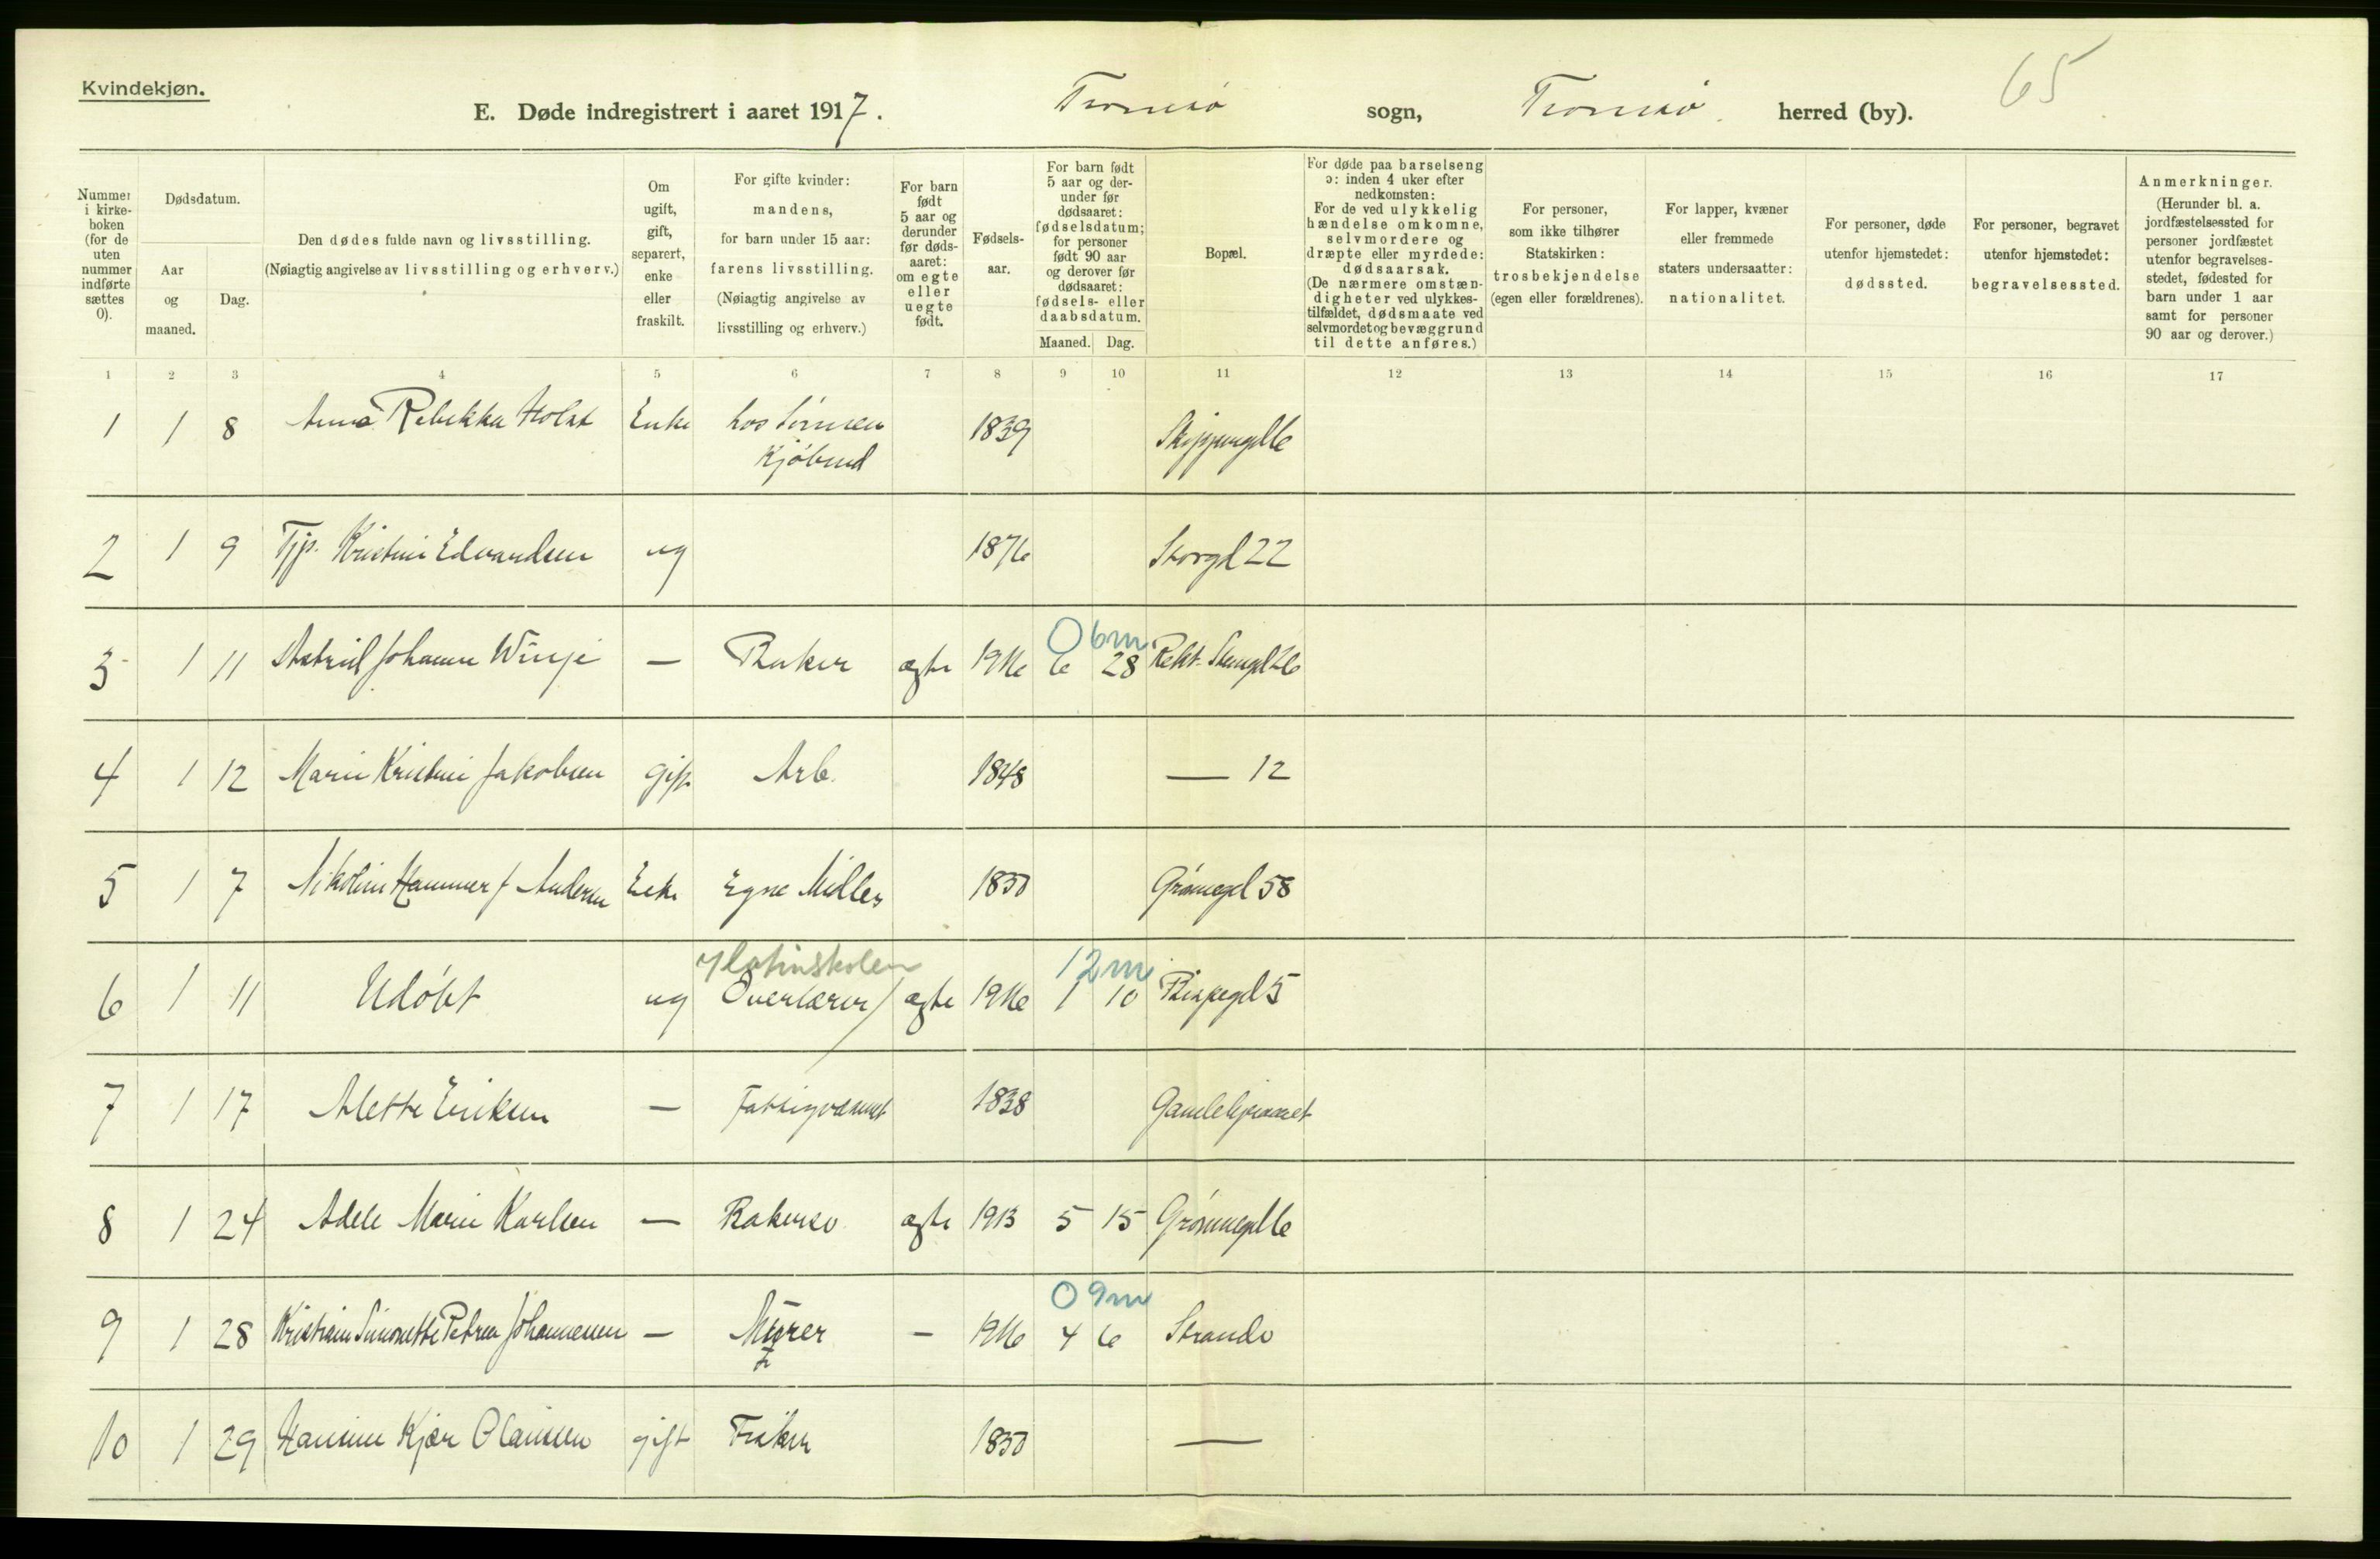 Kvindekjøn.
E. Døde indregistrert i aaret 1917. Tromsø sogn, Tromsø. herred (by). 65
Nummer i kirke-boken (for de uten nummer indførte sættes 0).
Dødsdatum.
Aar og maaned.
Dag.
Den dødes fulde navn og livsstilling.
(Nøiagtig angivelse av livsstilling og erhverv.)
Om ugift, gift, separert, enke eller fraskilt.
For gifte kvinder: mandens, for barn under 15 aar: farens livsstilling. (Nøiagtig angivelse av livsstilling og erhverv.)
For barn født 5 aar og derunder før døds-aaret: om egte eller uegte født.
Fødsels-aar.
For barn født 5 aar og der-under før dødsaaret: fødselsdatum; for personer født 90 aar og derover før dødsaaret: fødsels- eller daabsdatum.
Maaned. Dag.
Bopæl.
For døde paa barselseng ɔ: inden 4 uker efter nedkomsten: For de ved ulykkelig hændelse omkomne, selvmordere og dræpte eller myrdede: dødsaarsak. (De nærmere omstæn-digheter ved ulykkes-tilfældet, dødsmaate ved selvmordet og bevæggrund til dette anføres.)
For personer, som ikke tilhører Statskirken: trosbekjendelse (egen eller forældrenes).
For lapper, kvæner eller fremmede staters undersaatter: nationalitet.
For personer, døde utenfor hjemstedet: dødssted.
For personer, begravet utenfor hjemstedet: begravelsessted.
Anmerkninger. (Herunder bl. a. jordfæstelsessted for personer jordfæstet utenfor begravelses-stedet, fødested for barn under 1 aar samt for personer 90 aar og derover.)
1 2 3 4 5 6 7 8 9 10 11 12 13 14 15 16 17
1 1 8 Anna Rebekka Holst Enke hos Sønnen 1839
Kjøbmd
2 1 9 Tjp. Kristine Edvardsen ug 1876 Storgd 22
06m
3 1 11 Astrid Johanne Winje — Baker ægte 1916 6 28 Rekt. Steengd 26
4 1 12 Marie Kristine Jakobsen gift Arb. 1848 — 12
5 1 7 Nikoline Hammer f. Andersen Enke Egne Midler 1850 Grønnegd 58
v/latinskolen 12m
6 1 11 Udøbt ug Overlærer / ægte 1916 1 10 Bispegd 5
7 1 17 Alette Eriksen — Fattigvæsnet 1838 Gamlehjemmet
8 1 24 Adele Marie Karlsen — Bakersv. ægte 1913 5 15 Grønnegd 6
09m
9 1 28 Kristiane Simonette Petrea Johannesen — Murer — 1916 4 6 Strandv
10 1 29 Hansine Kjær Olaussen gift Fisker 1850 —